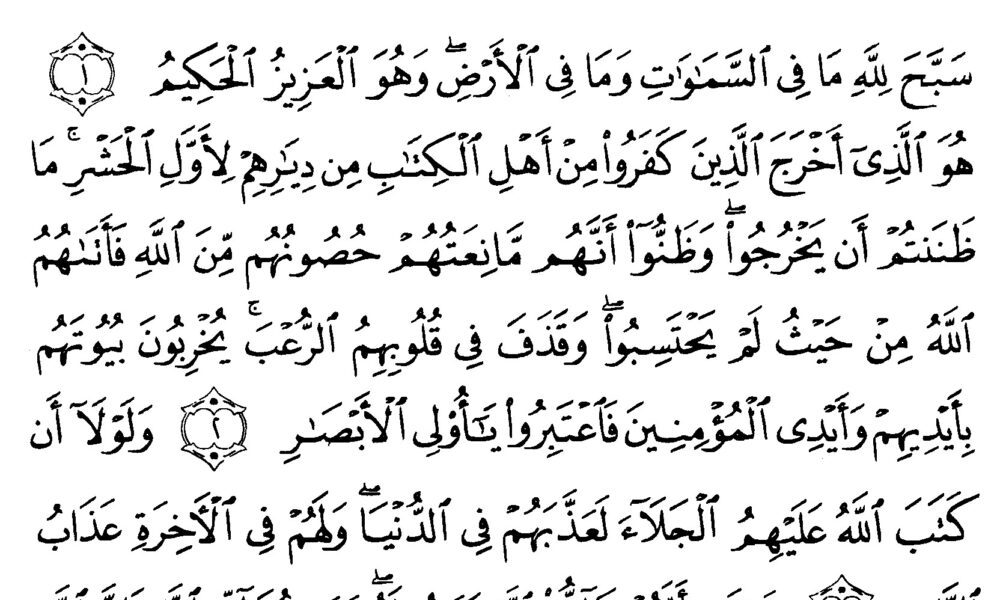 سَبَّحَ لِلَّهِ مَا فِى ٱلسَّمَٰوَٰتِ وَمَا فِى ٱلْأَرْضِۖ وَهُوَ ٱلْعَزِيزُ ٱلْحَكِيمُ ١
هُوَ ٱلَّذِىٓ أَخْرَجَ ٱلَّذِينَ كَفَرُوا۟ مِنْ أَهْلِ ٱلْكِتَٰبِ مِن دِيَٰرِهِمْ لِأَوَّلِ ٱلْحَشْرِۚ مَا
ظَنَنتُمْ أَن يَخْرُجُوا۟ۖ وَظَنُّوٓا۟ أَنَّهُم مَّانِعَتُهُمْ حُصُونُهُم مِّنَ ٱللَّهِ فَأَتَىٰهُمُ
ٱللَّهُ مِنْ حَيْثُ لَمْ يَحْتَسِبُوا۟ۖ وَقَذَفَ فِى قُلُوبِهِمُ ٱلرُّعْبَۚ يُخْرِبُونَ بُيُوتَهُم
بِأَيْدِيهِمْ وَأَيْدِى ٱلْمُؤْمِنِينَ فَٱعْتَبِرُوا۟ يَٰٓأُو۟لِى ٱلْأَبْصَٰرِ ٢ وَلَوْلَآ أَن
كَتَبَ ٱللَّهُ عَلَيْهِمُ ٱلْجَلَآءَ لَعَذَّبَهُمْ فِى ٱلدُّنْيَاۖ وَلَهُمْ فِى ٱلْءَاخِرَةِ عَذَابُ